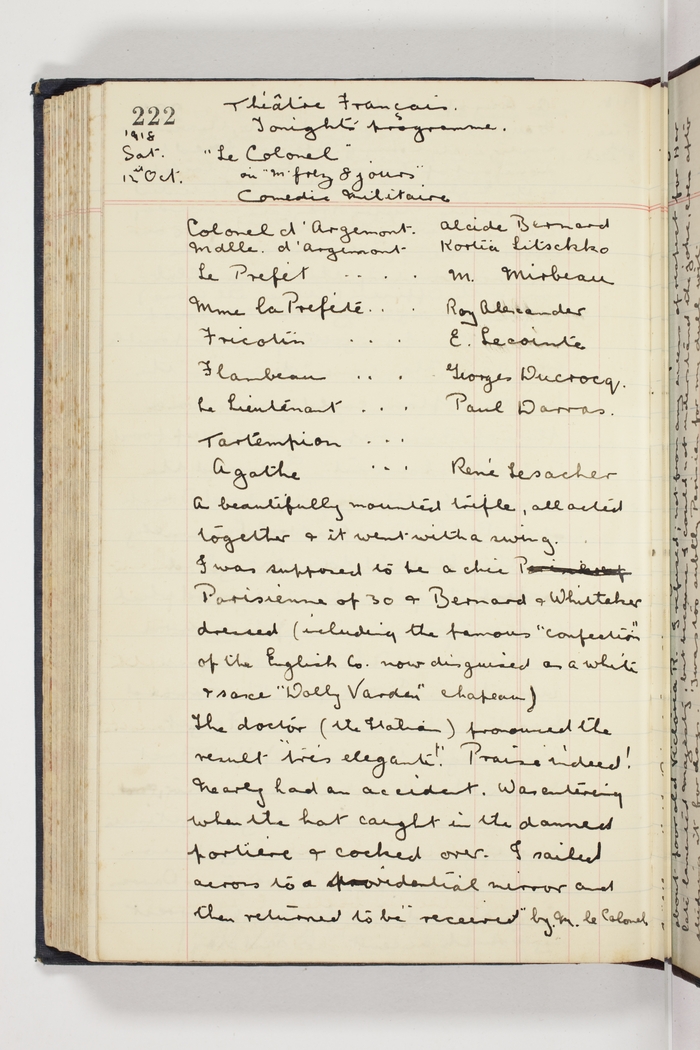 222
Théâtre Français.
Tonight's programme.
1918
Sat.
12th Oct.
"Le Colonel"
ou "M. frez 8 jours"
Comedie Militaire
Colonel d'Argemont. Alcide Bernard
Mdlle. d'Argemont Kortia Litschkko
Le Préfet .... M. Mirbeau
Mme la Preféte... Roy Alexander
Fricotin ... E. Lecointe
Flambeau ... Georges Ducrocq.
Le Lieutenant ... Paul Darras.
Tartempion ...
Agathe ... René Lesacher
A beautifully mounted trifle, all acted
together & it went with a swing.
I was supposed to be a chic
Parisienne of 30 & Bernard & Whitteker
dressed (including the famous "confection"
of the English Co. now disguised as a white
& saxe "Dolly Varden" chapeau)
The doctor (the Italian) pronounced the
result "très elegant"! Praise indeed!
Nearly had an accident. Was entering
when the hat caught in the damned
portiere & cocked over. I sailed
across to a providential mirror and
then returned to be "received" by M. le Colonel